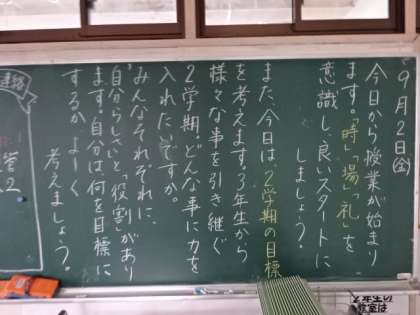 9月2日(金)
今日から授業が始まり
ます。「時」「場」「礼」を
意識し、良いスタートに
しましょう?
また、今日は、2学期の目標
を考えます。3年生から
様々な事を引き継ぐ
2学期。どんな事に力を
入れたいですか。
みんなそれぞれに、
"自分らしさ"と「役割」があり
ます。自分は、何を目標に
するか、よーく
考えましょう。
連絡
2年生の
教室は